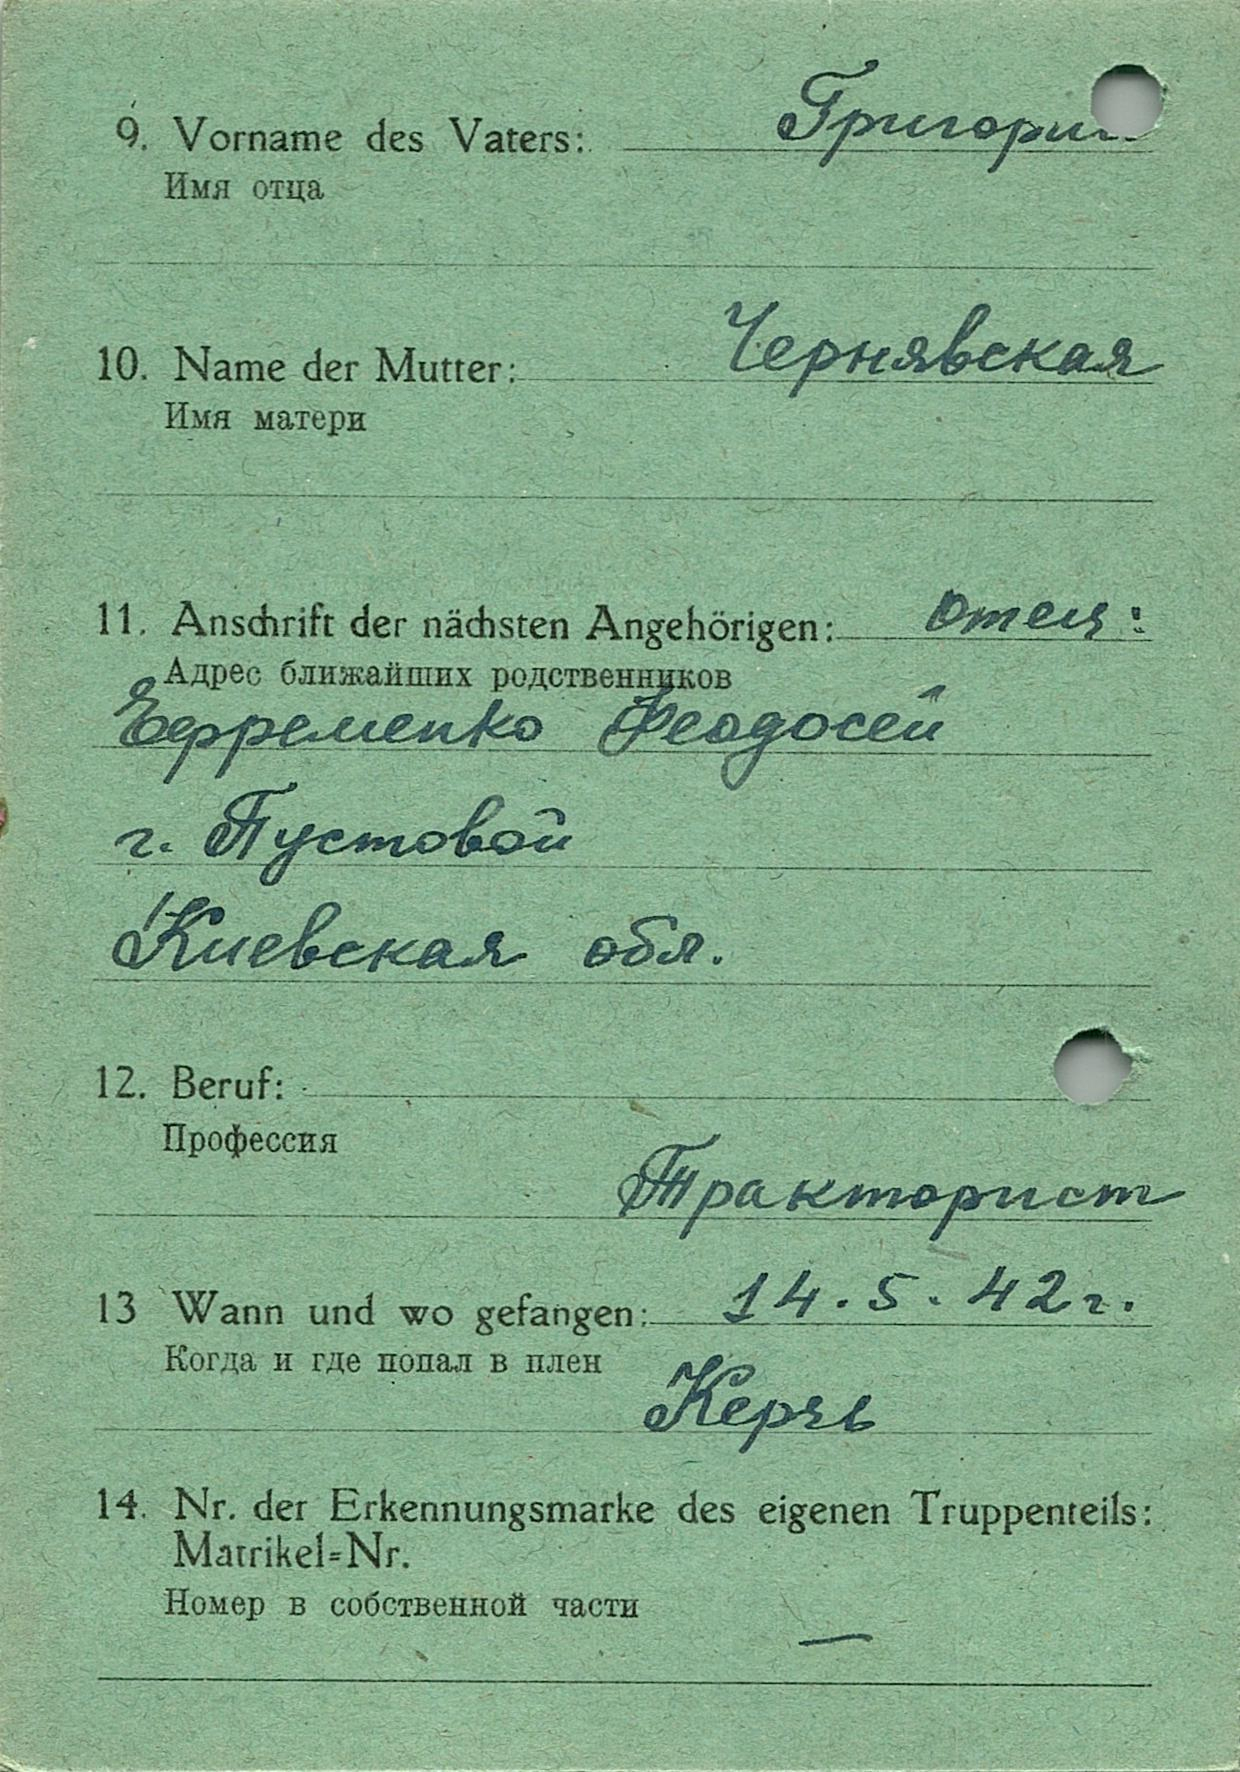 9. Vorname des Vaters: Григорий
Имя отца
10. Name der Mutter: Чернявская
Имя матери
11. Anschrift der nächsten Angehörigen: отец:
Адрес ближайших родственников
Ефременко Феодосей
г. Пустовой
Киевская обл.
12. Beruf:
Профессия
Тракторист
13 Wann und wo gefangen: 14.5.42г.
Когда и где попал в плен
Керчь
14. Nr. der Erkennungsmarke des eigenen Truppenteils:
Matrikel=Nr.
Номер в собственной части
—